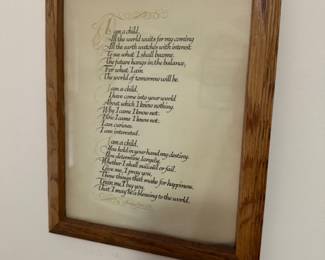 I am a child.
All the world waits for my coming
All the earth watches with interest
To see what I shall become.
The future hangs in the balance,
For what I am
The world of tomorrow will be.
I am a child.
I have come into your world
About which I know nothing.
Why I came I know not.
How I came I know not.
I am curious.
I am interested.
I am a child.
You hold in your hand my destiny.
You determine, largely,
Whether I shall succeed or fail.
Give me, I pray you,
Those things that make for happiness.
Train me, I beg you,
That I may be a blessing to the world.